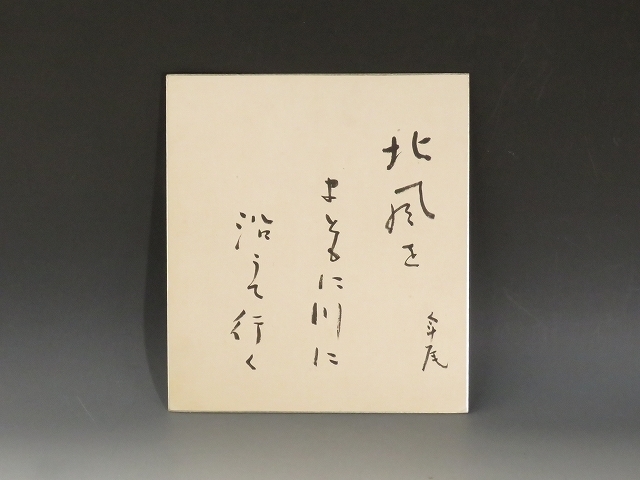 北風を
まともに川に
沿うて行く
年尾